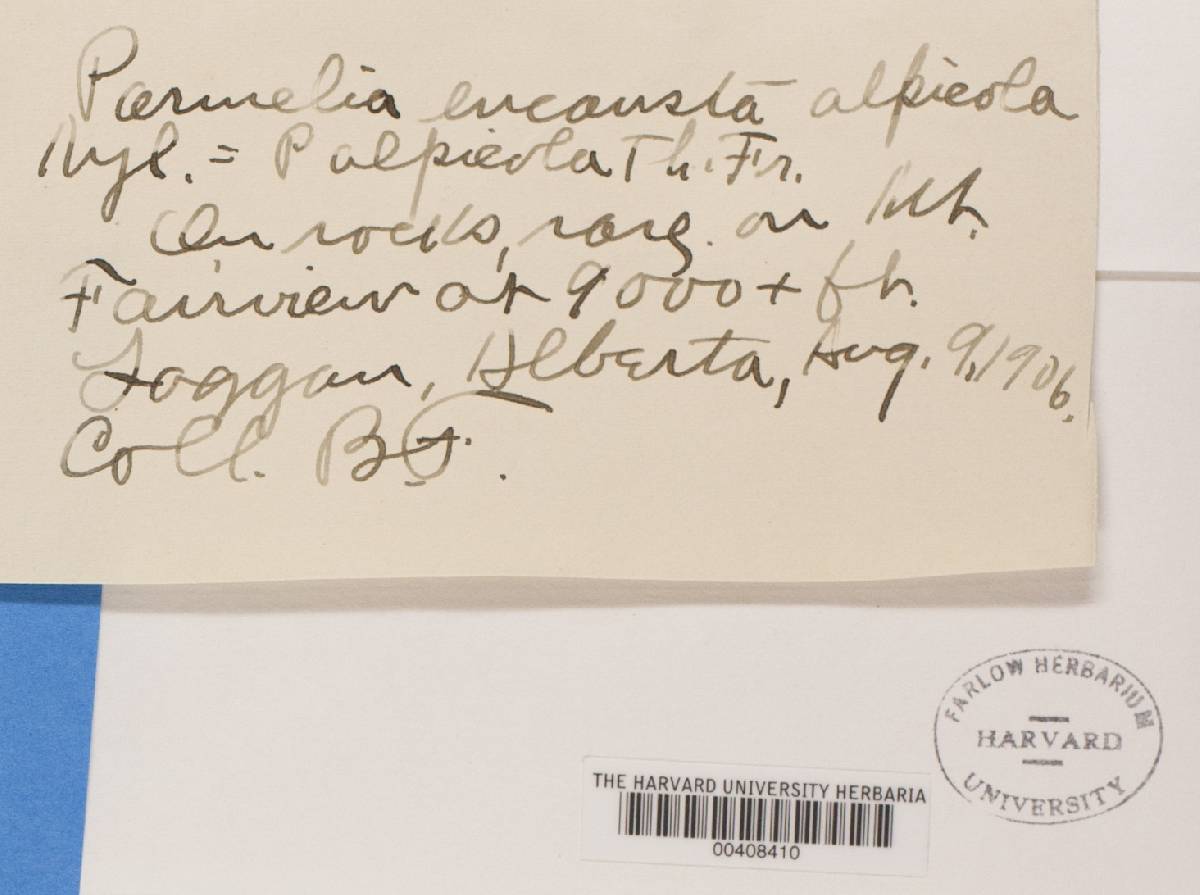 Parmelia encausta alpicola
Nyl. = P alpicola Th. Fr.
On rocks, rare. on Mt.
Fairview at 9000+ ft.
Laggan, Alberta, Aug. 9, 1906.
Coll.
FARLOW HERBARIUM
HARVARD
UNIVERSITY
THE HARVARD UNIVERSITY HERBARIA
00408410